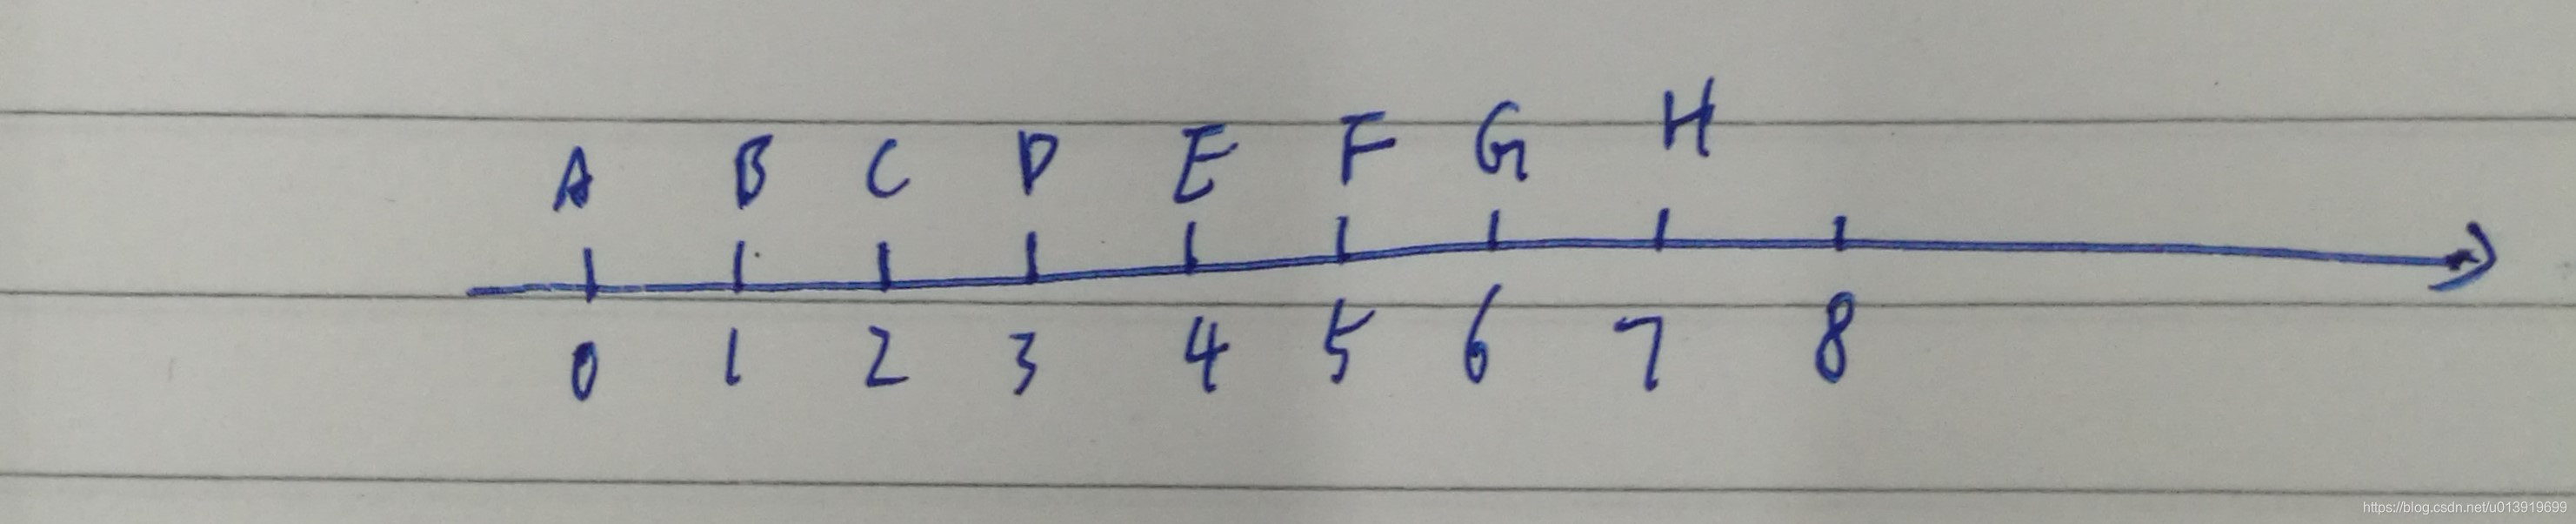 A B C D E F G H
0 1 2 3 4 5 6 7 8
https://blog.csdn.net/u013919699